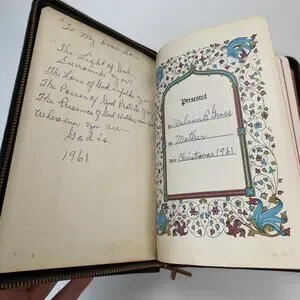 "To My dear Son"
"The Light of God
Surrounds you
The Love of God enfolds you
The Power of God Protects you
The Presence of God Watches over you
Wherever you are
God is
1961
Presented
To Melvin R Grose
By Mother
Christmas 1961